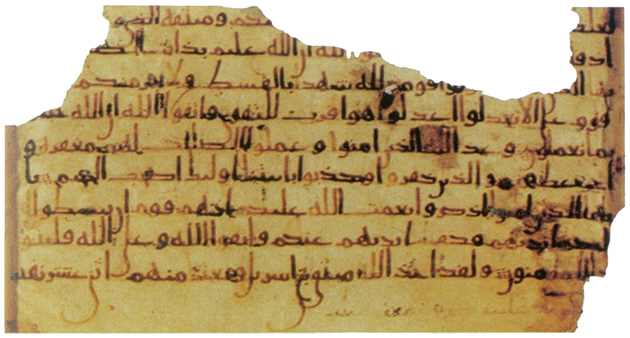 كم وميثقه الذي
الله ان الله عليم بذات
قومين لله شهدا بالقسط ولا يجرمنكم
قوم على الا تعدلوا اعدلوا هو اقرب للتقوى واتقوا الله ان الله
بما تعملون وعد الله الذين امنوا وعملوا الصلحت لهم مغفرة و
اجر عظيم والذين كفروا وكذبوا بايتنا اولئك اصحب الجحيم يا
ايها الذين امنوا اذكروا نعمت الله عليكم اذ هم قوم ان يبسطوا ا
ليكم ايديهم فكف ايديهم عنكم واتقوا الله وعلى الله فليتو
كل المومنون ولقد اخذ الله ميثق بني اسريل وبعثنا منهم اثني عشر نقيبا